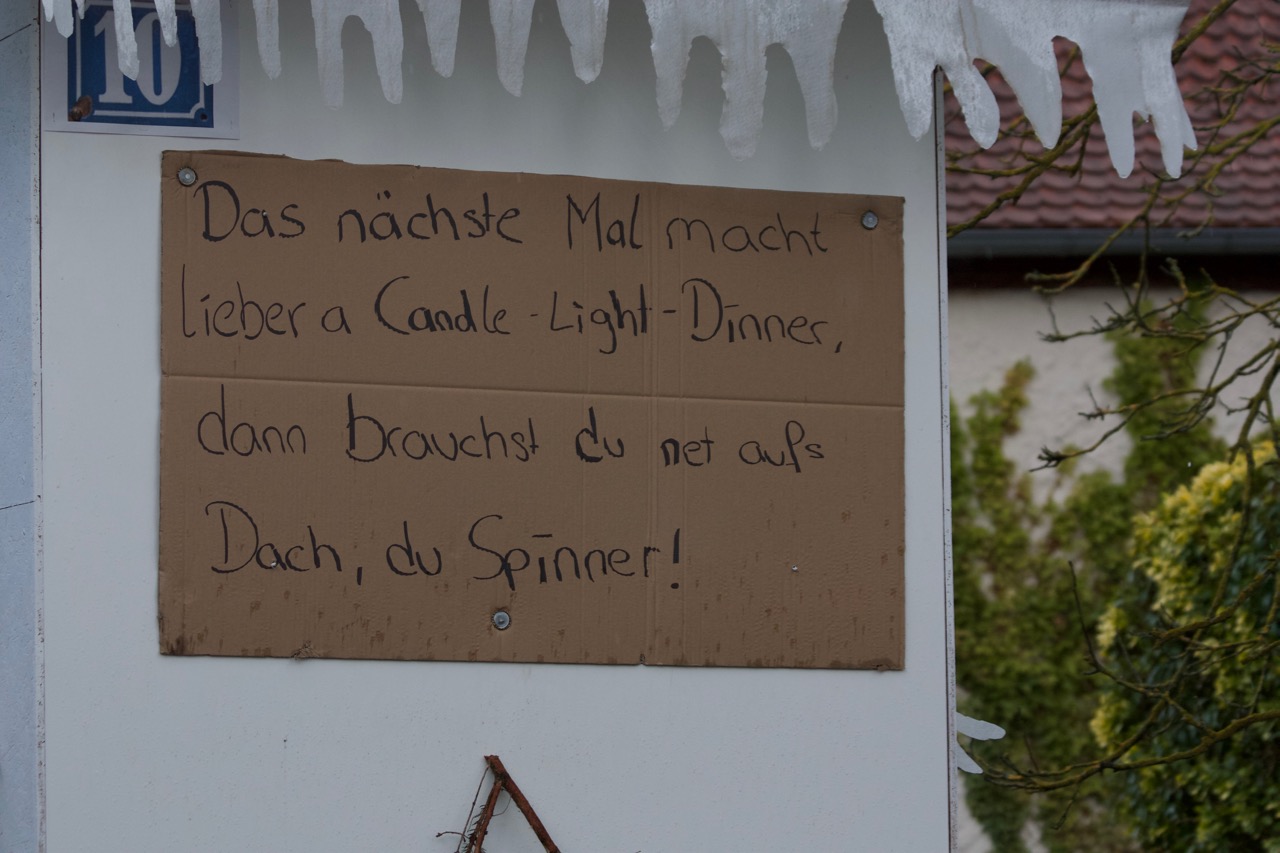 10
Das nächste Mal macht
lieber a Candle-Light-Dinner,
dann brauchst du net aufs
Dach, du Spinner!